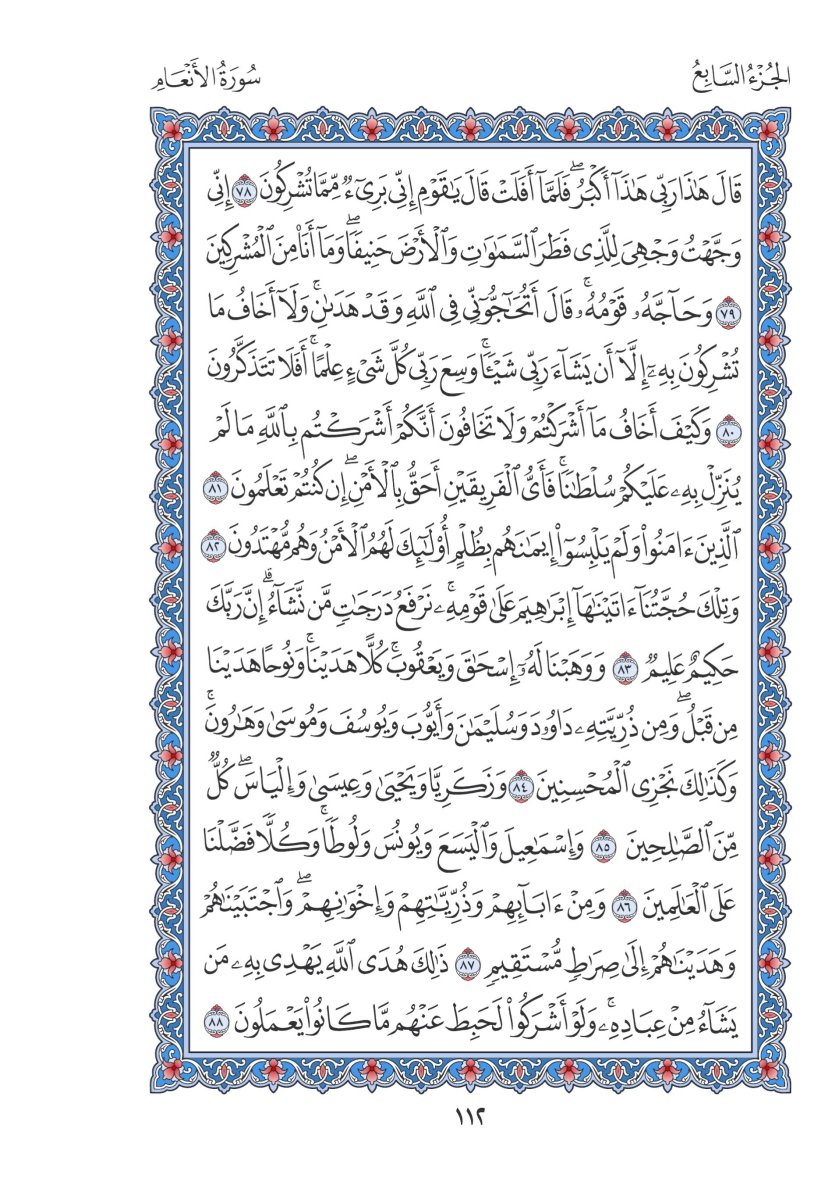 الجُزْءُ السَّابِعُ
سُورَةُ الأَنْعَامِ
قَالَ هَٰذَا رَبِّي هَٰذَآ أَكْبَرُۖ فَلَمَّآ أَفَلَتْ قَالَ يَٰقَوْمِ إِنِّي بَرِيٓءٞ مِّمَّا تُشْرِكُونَ ٧٨ إِنِّي
وَجَّهْتُ وَجْهِيَ لِلَّذِي فَطَرَ ٱلسَّمَٰوَٰتِ وَٱلْأَرْضَ حَنِيفٗاۖ وَمَآ أَنَا۠ مِنَ ٱلْمُشْرِكِينَ
٧٩ وَحَآجَّهُۥ قَوْمُهُۥۚ قَالَ أَتُحَٰٓجُّوٓنِّي فِي ٱللَّهِ وَقَدْ هَدَىٰنِۚ وَلَآ أَخَافُ مَا
تُشْرِكُونَ بِهِۦٓ إِلَّآ أَن يَشَآءَ رَبِّي شَيْـٔٗاۚ وَسِعَ رَبِّي كُلَّ شَيْءٍ عِلْمًاۚ أَفَلَا تَتَذَكَّرُونَ
٨٠ وَكَيْفَ أَخَافُ مَآ أَشْرَكْتُمْ وَلَا تَخَافُونَ أَنَّكُمْ أَشْرَكْتُم بِٱللَّهِ مَا لَمْ
يُنَزِّلْ بِهِۦ عَلَيْكُمْ سُلْطَٰنٗاۚ فَأَيُّ ٱلْفَرِيقَيْنِ أَحَقُّ بِٱلْأَمْنِۖ إِن كُنتُمْ تَعْلَمُونَ ٨١
ٱلَّذِينَ ءَامَنُوا۟ وَلَمْ يَلْبِسُوٓا۟ إِيمَٰنَهُم بِظُلْمٍ أُو۟لَٰٓئِكَ لَهُمُ ٱلْأَمْنُ وَهُم مُّهْتَدُونَ ٨٢
وَتِلْكَ حُجَّتُنَآ ءَاتَيْنَٰهَآ إِبْرَٰهِيمَ عَلَىٰ قَوْمِهِۦۚ نَرْفَعُ دَرَجَٰتٖ مَّن نَّشَآءُۗ إِنَّ رَبَّكَ
حَكِيمٌ عَلِيمٞ ٨٣ وَوَهَبْنَا لَهُۥٓ إِسْحَٰقَ وَيَعْقُوبَۚ كُلًّا هَدَيْنَاۚ وَنُوحًا هَدَيْنَا
مِن قَبْلُۖ وَمِن ذُرِّيَّتِهِۦ دَاوُۥدَ وَسُلَيْمَٰنَ وَأَيُّوبَ وَيُوسُفَ وَمُوسَىٰ وَهَٰرُونَۚ
وَكَذَٰلِكَ نَجْزِي ٱلْمُحْسِنِينَ ٨٤ وَزَكَرِيَّا وَيَحْيَىٰ وَعِيسَىٰ وَإِلْيَاسَۖ كُلّٞ
مِّنَ ٱلصَّٰلِحِينَ ٨٥ وَإِسْمَٰعِيلَ وَٱلْيَسَعَ وَيُونُسَ وَلُوطٗاۚ وَكُلّٗا فَضَّلْنَا
عَلَى ٱلْعَٰلَمِينَ ٨٦ وَمِنْ ءَابَآئِهِمْ وَذُرِّيَّٰتِهِمْ وَإِخْوَٰنِهِمْۖ وَٱجْتَبَيْنَٰهُمْ
وَهَدَيْنَٰهُمْ إِلَىٰ صِرَٰطٖ مُّسْتَقِيمٖ ٨٧ ذَٰلِكَ هُدَى ٱللَّهِ يَهْدِي بِهِۦ مَن
يَشَآءُ مِنْ عِبَادِهِۦۚ وَلَوْ أَشْرَكُوا۟ لَحَبِطَ عَنْهُم مَّا كَانُوا۟ يَعْمَلُونَ ٨٨
١١٢